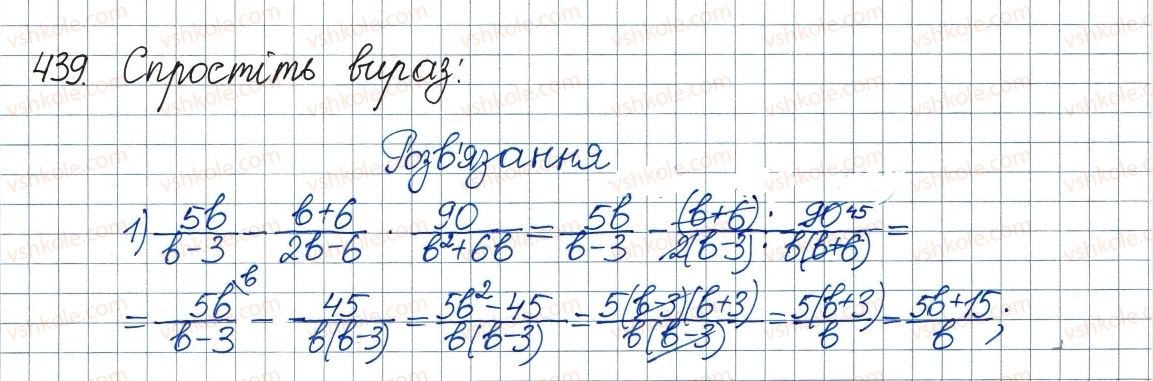 439. Спростіть вираз:
Розв'язання
1) 5b/(b-3) - (b+6)/(2b-6) · 90/(b²+6b) = 5b/(b-3) - (b+6)/(2(b-3)) · 90⁴⁵/(b(b+6)) =
= 5b\b/(b-3) - 45/(b(b-3)) = (5b²-45)/(b(b-3)) = (5(b-3)(b+3))/(b(b-3)) = (5(b+3))/b = (5b+15)/b;